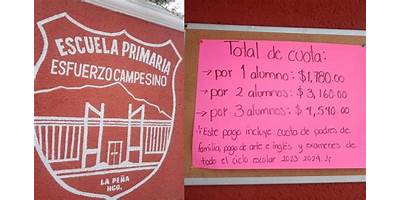 ESCUELA PRIMARIA
ESFUERZO CAMPESINO
LA PEÑA
HGO.
Total de cuota:
→ por 1 alumno: $1,780.00
→ por 2 alumnos: $3,160.00
→ por 3 alumnos: $4,540.00
Este pago incluye: cuota de padres de
familia, pago de arte e inglés y exámenes de
todo el ciclo escolar 2023-2024